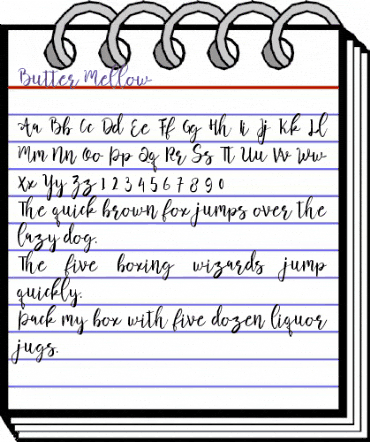 Butter Mellow
Aa Bb Cc Dd Ee Ff Gg Hh Ii Jj Kk Ll
Mm Nn Oo Pp Qq Rr Ss Tt Uu Vv Ww
Xx Yy Zz 1 2 3 4 5 6 7 8 9 0
The quick brown fox jumps over the
lazy dog.
The five boxing wizards jump
quickly.
Pack my box with five dozen liquor
jugs.